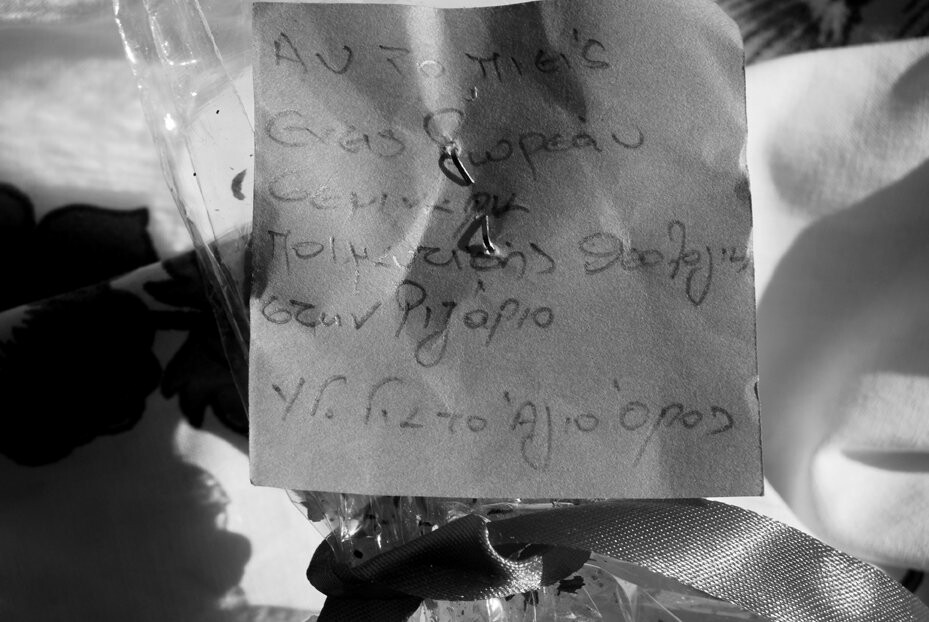 Αν το πιείς
είες δωρεάν
σεμινάρια
Ποιμαντικής Θεολογίας
στην Ριζάριο
Υγ. Για το Άγιο Όρος